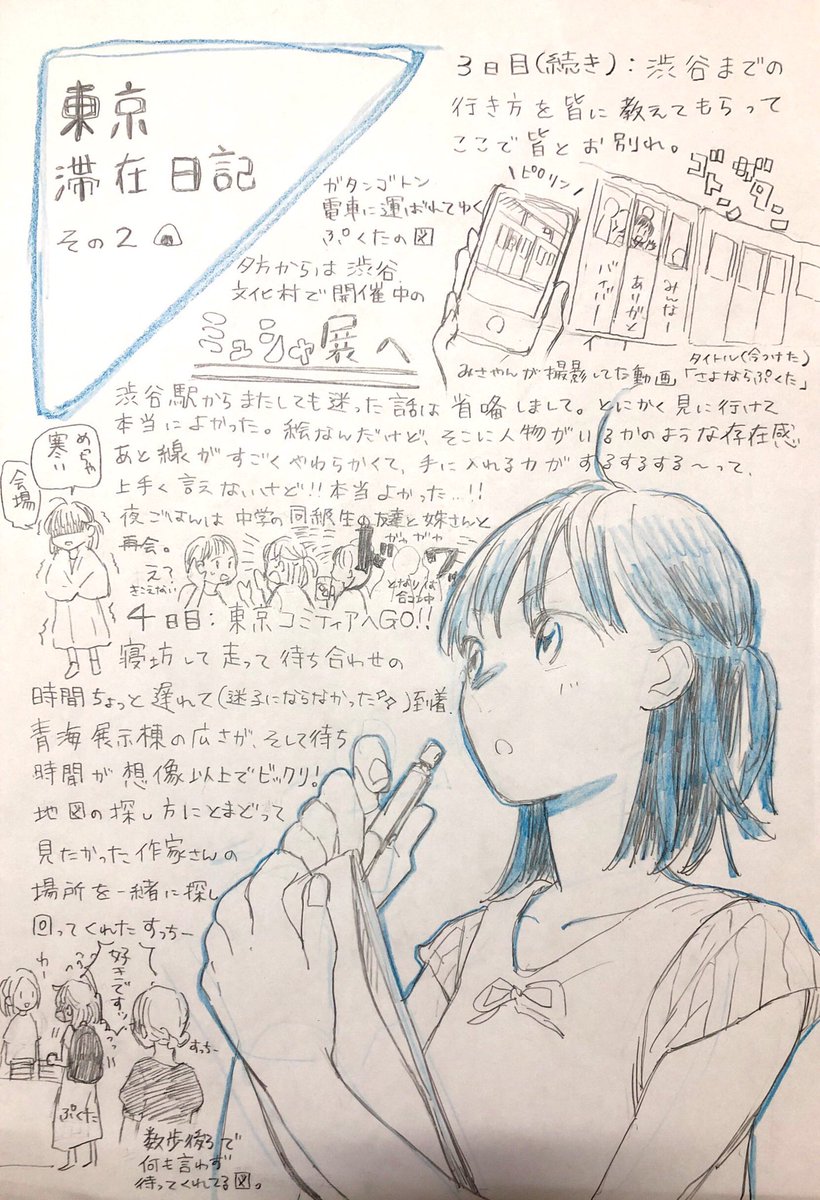 東京
滞在日記
その2
3日目(続き):渋谷までの
行き方を皆に教えてもらって
ここで皆とお別れ。
ガタンゴトン
電車に運ばれてゆく
ぷくたの図
ピロリン
ゴトン
ガタン
バイバーイ
ありがと
みんなー
みさやんが撮影してた動画
タイトル(今つけた)
「さよならぷくた」
夕方からは渋谷
文化村で開催中の
ミュシャ展へ
渋谷駅からまたしても迷った話は省略しまして。とにかく見に行けて
本当によかった。絵なんだけど、そこに人物がいるかのような存在感
あと線がすごくやわらかくて、手に入れる力がするするする〜って、
上手く言えないけど!!本当よかった…!!
夜ごはんは中学の同級生の友達と妹さんと
再会。
え?
きこえない
がやがや
となりは
合コン中
めちゃ
寒い
会場
4日目:東京コミティアへGO!!
寝坊して走って待ち合わせの
時間ちょっと遅れて(迷子にならなかった☆)到着。
青海展示棟の広さが、そして待ち
時間が想像以上でビックリ!
地図の探し方にとまどって
見たかった作家さんの
場所を一緒に探し
回ってくれたすっちー
わー
好きですッ
すっちー
ぷくた
数歩後ろで
何も言わず
待ってくれてる図。